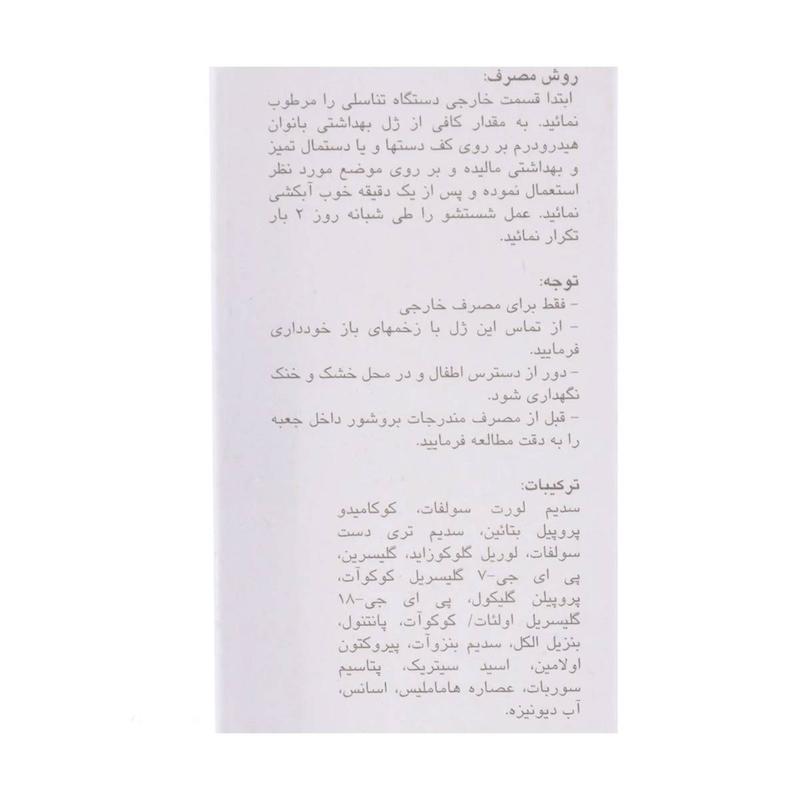 روش مصرف:
ابتدا قسمت خارجی دستگاه تناسلی را مرطوب
نمائید. به مقدار کافی از ژل بهداشتی بانوان
هیدرودرم بر روی کف دستها و یا دستمال تمیز
و بهداشتی مالیده و بر روی موضع مورد نظر
استعمال نموده و پس از یک دقیقه خوب آبکشی
نمائید. عمل شستشو را طی شبانه روز ۲ بار
تکرار نمائید.
توجه:
- فقط برای مصرف خارجی
- از تماس این ژل با زخمهای باز خودداری
فرمایید.
- دور از دسترس اطفال و در محل خشک و خنک
نگهداری شود.
- قبل از مصرف مندرجات بروشور داخل جعبه
را به دقت مطالعه فرمایید.
ترکیبات:
سدیم لورت سولفات، کوکامیدو
پروپیل بتائین، سدیم تری دست
سولفات، لوریل گلوکوزاید، گلیسرین،
پی ای جی-۷ گلیسریل کوکوآت،
پروپیلن گلیکول، پی ای جی-۱۸
گلیسریل اولئات/ کوکوآت، پانتنول،
بنزیل الکل، سدیم بنزوآت، پیروکتون
اولامین، اسید سیتریک، پتاسیم
سوربات، عصاره هاماملیس، اسانس،
آب دیونیزه.